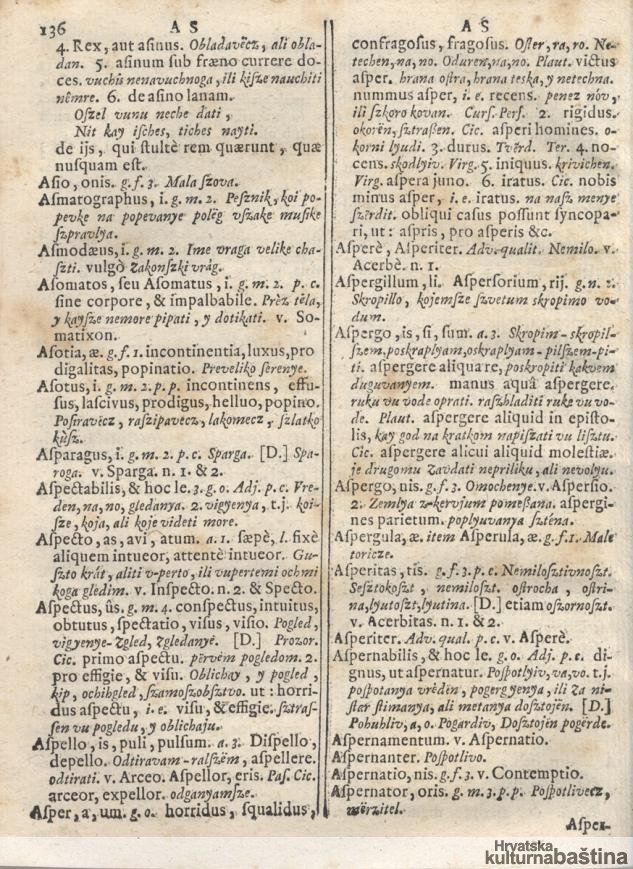 136 A S
4. Rex, aut asinus. Obladavëcz, ali obla-
dan. 5. asinum sub fræno currere do-
ces. vuchis nenavuchnoga, ili kjsze nauchiti
nêmre. 6. de asino lanam.
Oszel vunu neche dati,
Nit kay isches, tiches nayti.
de ijs, qui stultè rem quærunt, quæ
nusquam est.
Asio, onis. g. f. 3. Mala szova.
Asmatographus, i. g. m. 2. Pesznik, koi po-
pevke na popevanye polëg vszake musike
szpravlya.
Asmodæus, i. g. m. 2. Ime vraga velike cha-
szti. vulgò Zakonszki vrág.
Asomatos, seu Asomatus, i. g. m. 2. p. c.
sine corpore, & impalbabile. Prèz tëla,
y kaysze nemore pipati, y dotikati. v. So-
matixon.
Asotia, æ. g. f. 1. incontinentia, luxus, pro
digalitas, popinatio. Preveliko sërenye.
Asotus, i. g. m. 2. p. p. incontinens, effu-
sus, lascivus, prodigus, helluo, popino.
Posiravëcz, raszipavëcz, lakomecz, szlatko
kùsz.
Asparagus, i. g. m. 2. p. c. Sparga. [D.] Spa-
roga. v. Sparga. n. 1. & 2.
Aspectabilis, & hoc le. 3. g. o. Adj. p. c. Vre-
den, na, no, gledanya. 2. vigyenya, t. j. koi-
sze, koja, ali koje videti more.
Aspecto, as, avi, atum. a. 1. sæpè, l. fixè
aliquem intueor, attentè intueor. Gu-
szto krát, aliti v-perto, ili vupertemi ochmi
koga gledim. v. Inspecto. n. 2. & Specto.
Aspectus, ûs. g. m. 4. conspectus, intuitus,
obtutus, spectatio, visus, visio. Pogled,
vigyenye-Zgled, Zgledanyé. [D.] Prozor.
Cic. primo aspectu. përvëm pogledom. 2.
pro effigie, & visu. Oblichay, y pogled,
kip, ochihgled, szamoszobsztvo. ut: horri-
dus aspectu, i. e. visu, & effigie. sztras-
sen vu pogledu, y oblichaju.
Aspello, is, puli, pulsum. a. 3. Dispello,
depello. Odtiravam-ralszëm, aspellere.
odtirati. v. Arceo. Aspellor, eris. Pas. Cic.
arceor, expellor. odganyamsze.
Asper, a, um. g. o. horridus, squalidus,
A S
confragosus, fragosus. Oster, ra, ro. Ne-
techen, na, no. Oduren, na, no. Plaut. victus
asper. hrana ostra, hrana teska, y netechna.
nummus asper, i. e. recens. penez nòv,
ili szkoro kovan. Curs. Pers. 2. rigidus.
okorën, sztraßen. Cic. asperi homines. o-
korni lyudi. 3. durus. Tvërd. Ter. 4. no-
cens. skodlyiv. Virg. 5. iniquus. krivichen.
Virg. aspera juno. 6. iratus. Cic. nobis
minus asper, i. e. iratus. na nasz menye
szërdit. obliqui casus possunt syncopa-
ri, ut: aspris, pro asperis &c.
Asperè, Asperiter. Adv. qualit. Nemilo. v.
Acerbè. n. 1.
Aspergillum, li. Aspersorium, rij. g. n. 2.
Skropillo, kojemsze szvetum skropimo vo-
dum.
Aspergo, is, si, sum. a. 3. Skropim-skropil-
szem, poskraplyam, oskraplyam-pilszem-pi-
ti. aspergere aliqua re, poskropiti kakvem
duguvanyem. manus aquâ aspergere.
ruku vu vode oprati. raszhladiti ruke vu vo-
de. Plaut. aspergere aliquid in episto-
lis, kay god na kratkom napiszati vu lisztu.
Cic. aspergere alicui aliquid molestiæ.
je drugomu Zavdati nepriliku, ali nevolyu.
Aspergo, nis. g. f. 3. Omochenye. v. Aspersio.
2. Zemlya z-kervjum pomeßana. aspergi-
nes parietum. poplyuvanya szténa.
Aspergula, æ. item Asperula, æ. g. f. 1. Male
toricze.
Asperitas, tis. g. f. 3. p. c. Nemilosztivnoszt.
Sesztokoszt, nemiloszt. ostrocha, ostri-
na, lyutoszt, lyutina. [D.] etiam oszornoszt.
v. Acerbitas. n. 1. & 2.
Asperiter. Adv. qual. p. c. v. Asperè.
Aspernabilis, & hoc le. g. o. Adj. p. c. di-
gnus, ut aspernatur. Pospotlyiv, va, vo. t. j.
pospotanya vrëdën, pogergyenya, ili Za ni-
star stimanya, ali metanya dosztojën. [D.]
Pohuhliv, a, o. Pogardiv, Dosztojën pogërde.
Aspernamentum. v. Aspernatio.
Aspernanter. Pospotlivo.
Aspernatio, nis. g. f. 3. v. Contemptio.
Aspernator, oris. g. m. 3. p. p. Pospotlivecz,
mërzitel.
Asper-
Hrvatska
kulturnabaština